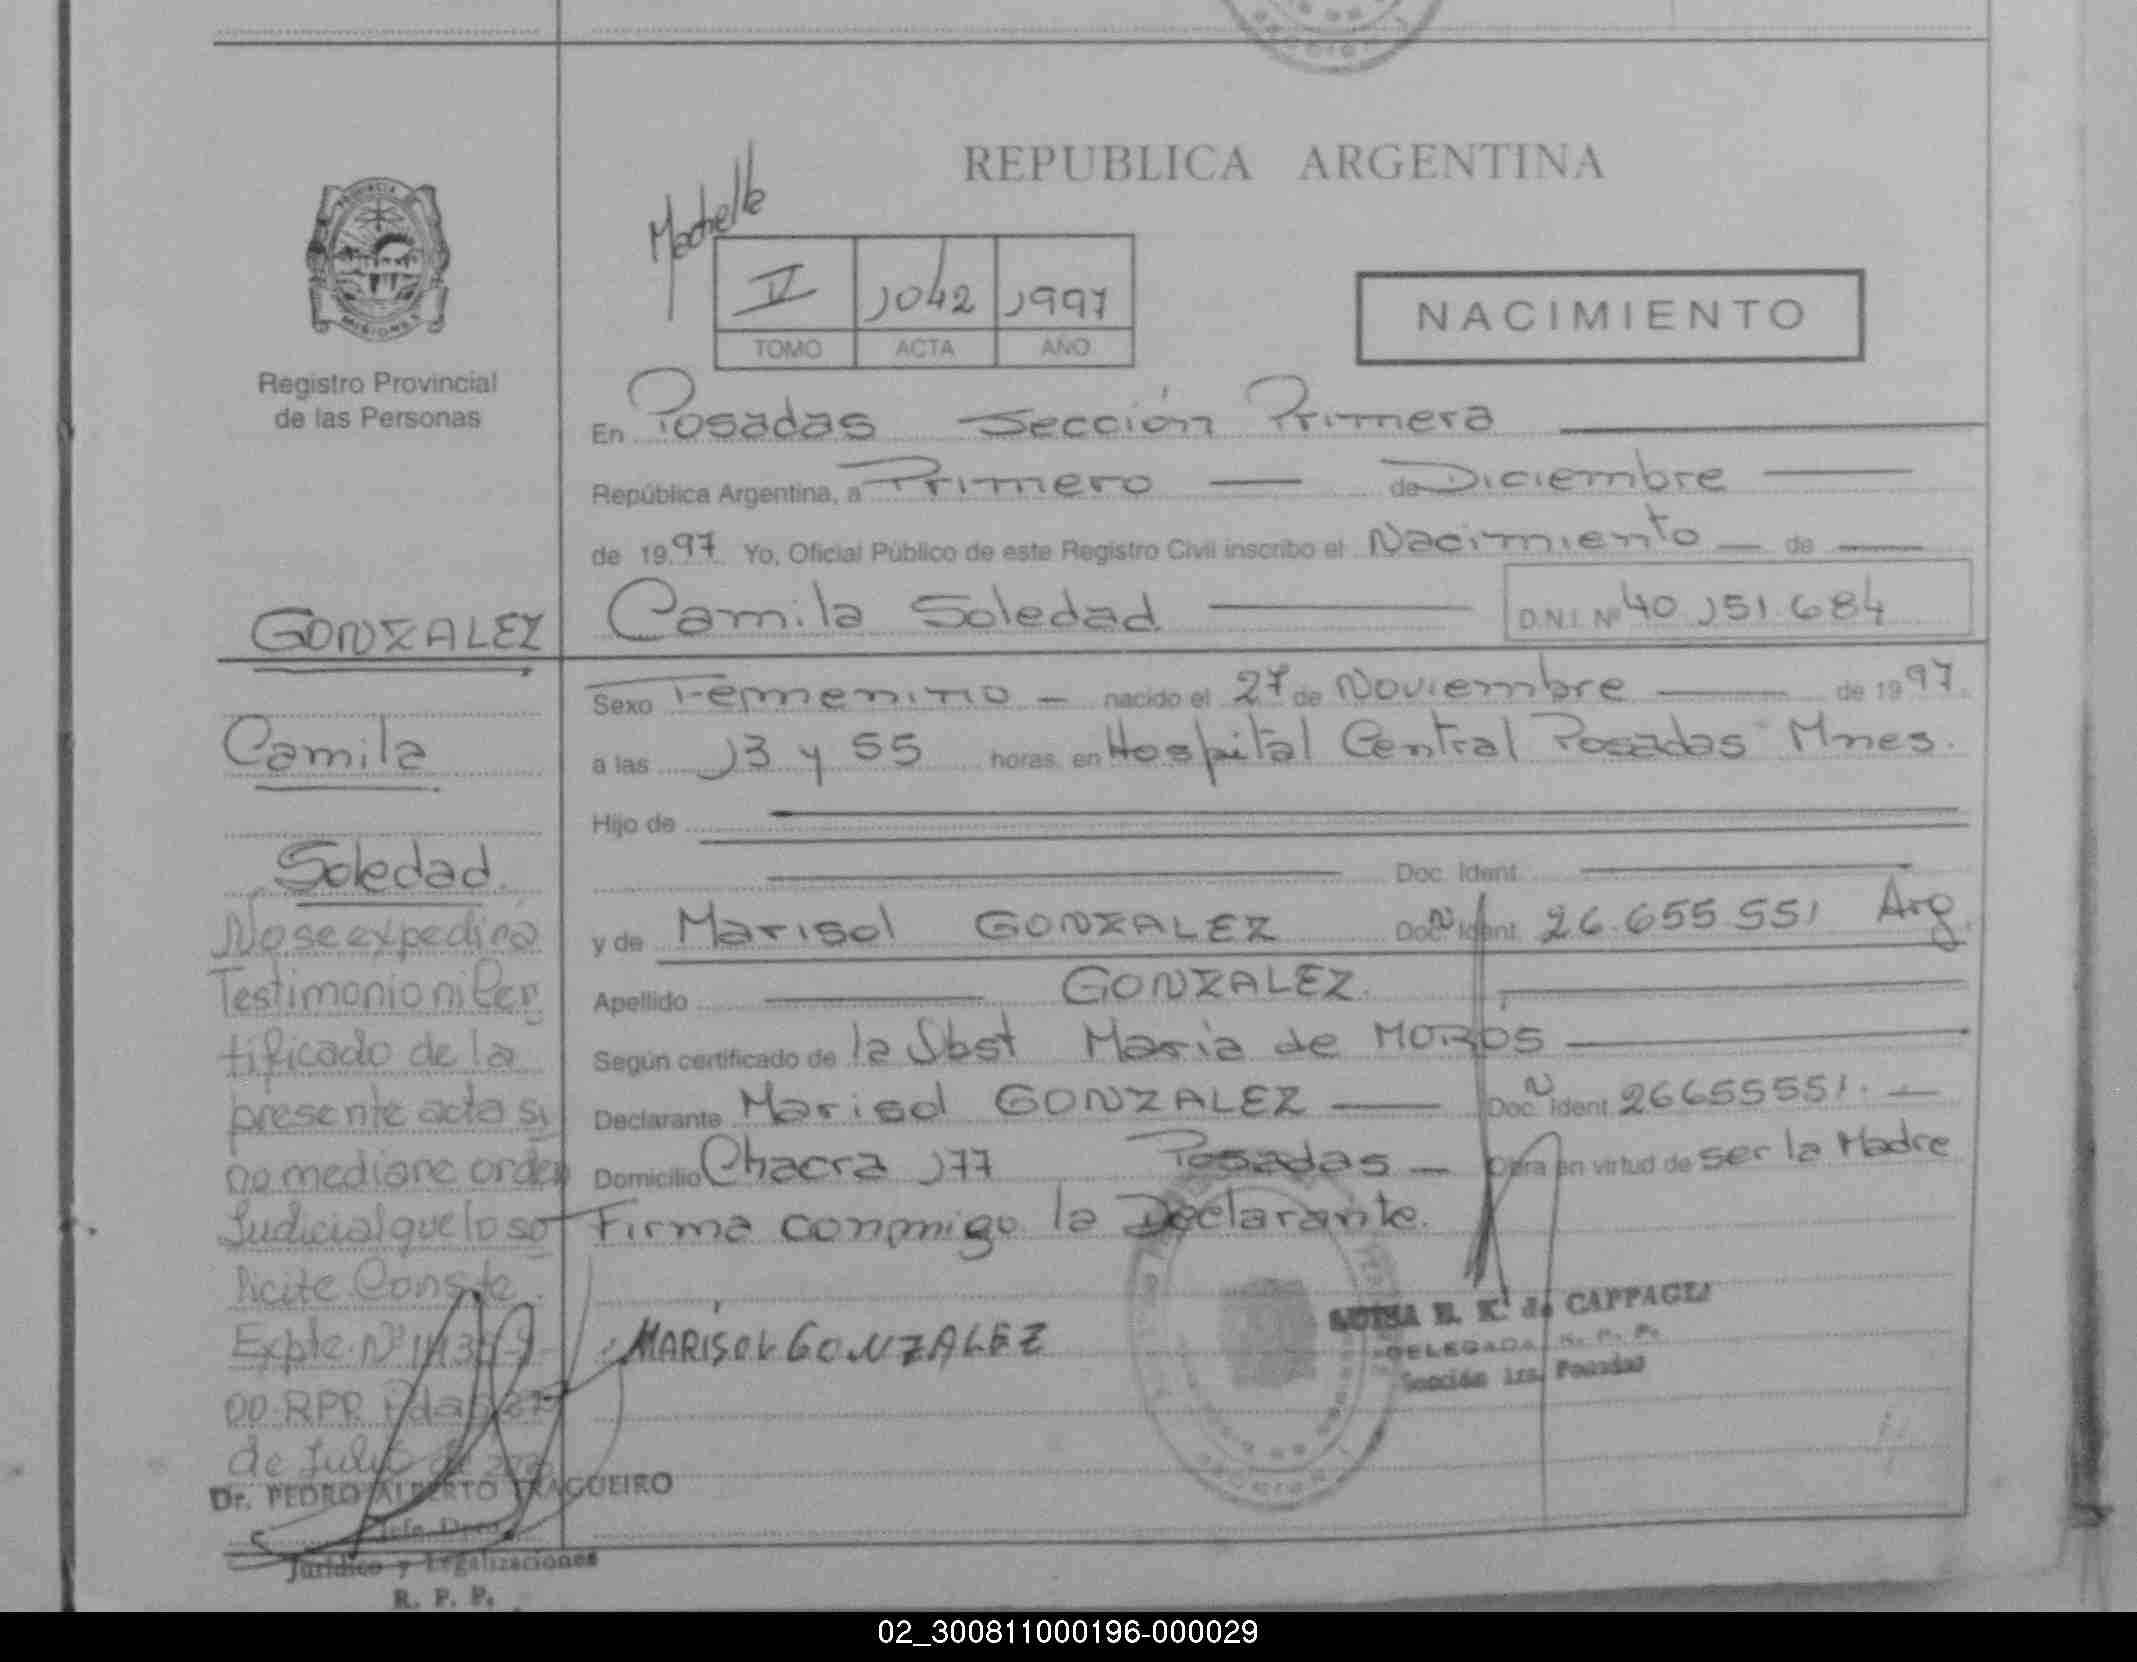 REPUBLICA ARGENTINA
PROVINCIA
MISIONES
Registro Provincial
de las Personas
II 1042 1997
TOMO ACTA AÑO
NACIMIENTO
En Posadas Sección Primera
República Argentina, a Primero de Diciembre
de 1997 Yo, Oficial Público de este Registro Civil inscribo el Nacimiento de
Camila Soledad D.N.I. Nº 40.151.684
Sexo Femenino nacido el 27 de Noviembre de 1997.
a las 13 y 55 horas en Hospital Central Posadas Mnes.
Hijo de
Doc. Ident.
y de Marisol GONZALEZ Doc. Ident. N 26.655.551 Arg.
Apellido GONZALEZ.
Según certificado de la Obst Maria de
Declarante Marisol GONZALEZ Doc. Ident. N 26655551.
Domicilio Chacra 177 Posadas Obra en virtud de ser la Madre
Firma conmigo la Declarante.
MARISOL GONZALEZ
LUISA E. K. de CAPPAGLI
DELEGADA R. P. P.
Sección 1ra. Posadas
GONZALEZ
Camila
Soledad
No se expedirá
Testimonio ni Cer
tificado de la
presente acta si
no mediare orden
Judicial que lo so
licite Conste.
Expte. Nº
de Julio
Dr. PEDRO ALBERTO
Jefe Dpto.
Jurídico y Legalizaciones
R. P. P.
02_300811000196-000029